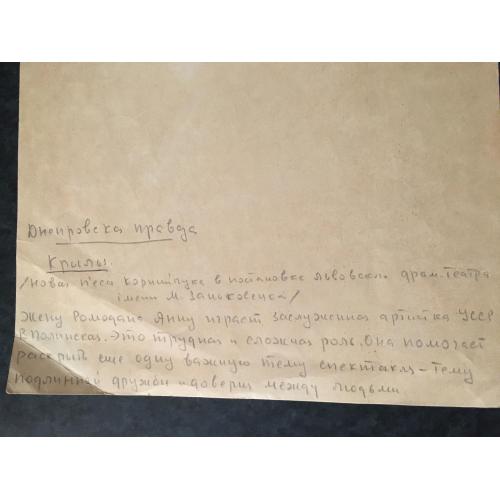 Днепровска правда
Крылы.
/новая п'еса Корнийчука в постановке львовского драм. театра
імени М. Заньковецка/
Жену Ромодана Анну играет заслуженная артистка УССР
В. Полинская. Это трудная и сложная роль. Она помогает
раскрить еще одну важную тему спектакля – тему
подлинной дружби и доверия между людьми.